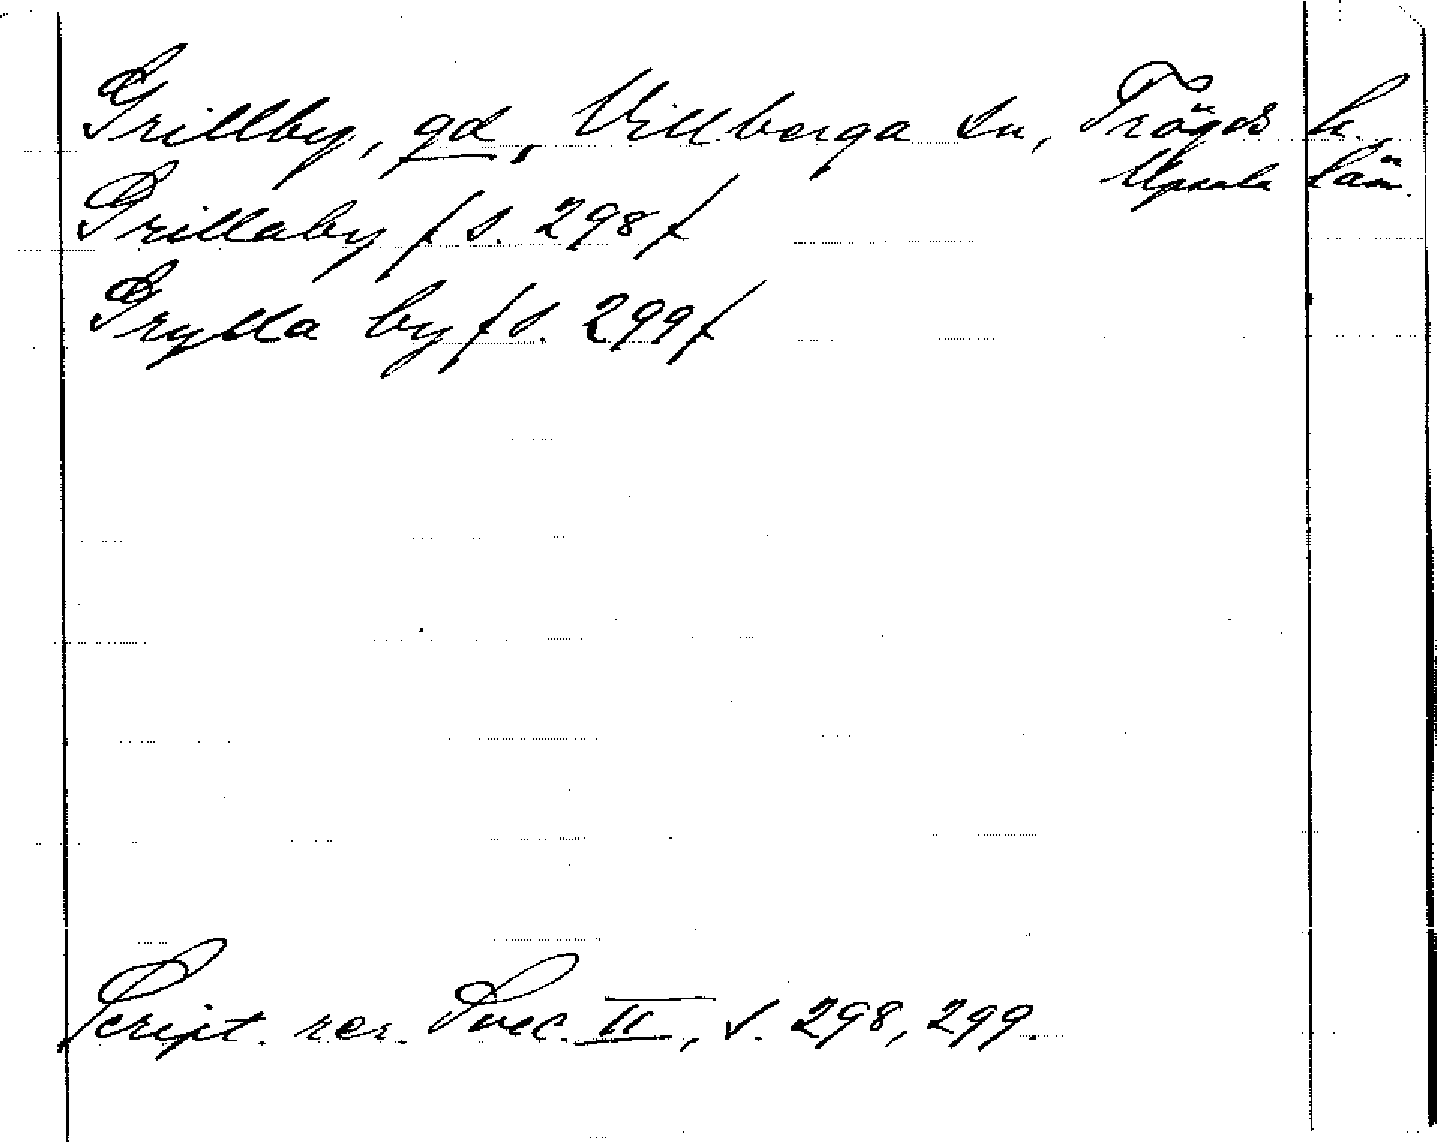 Grillby, gd, Villberga sn, Trögds h.
Upsala län.
Grillaby / s. 298 /
Grylla by / s. 299 /
Script. rer. Svec. II, s. 298, 299.